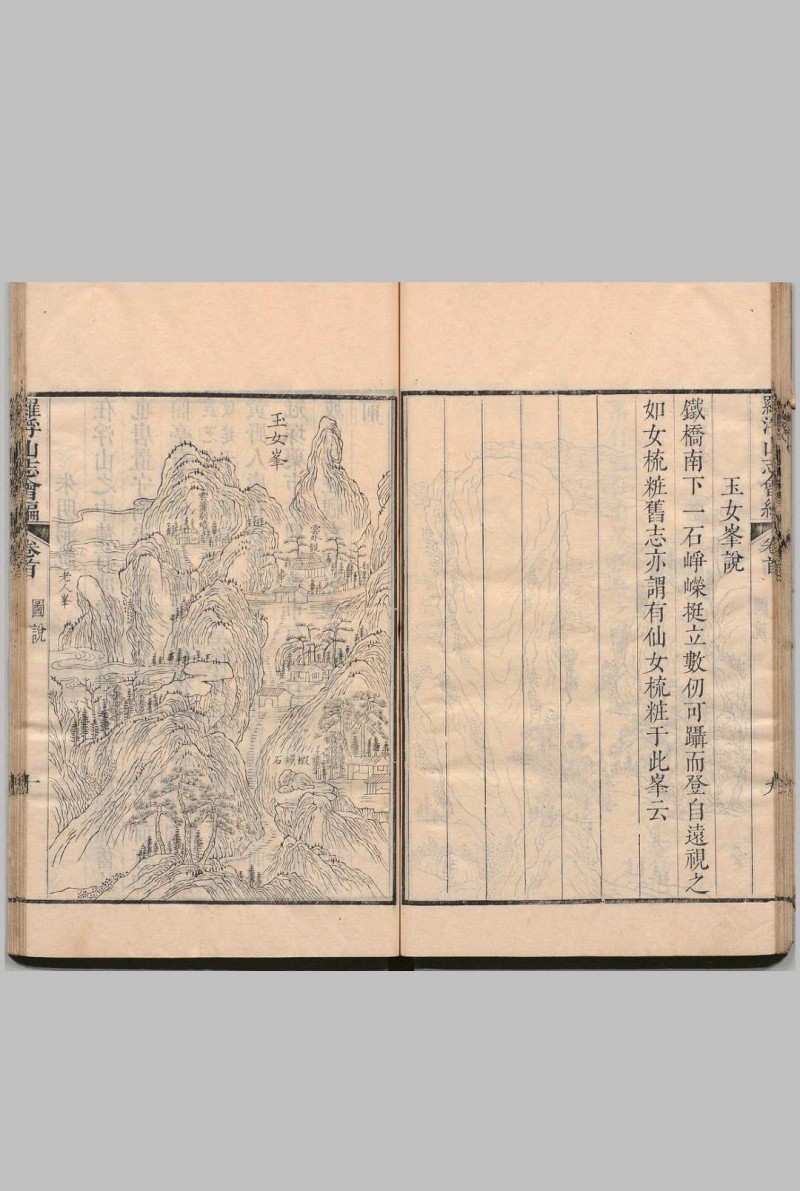 玉女峯說
鐵橋南下一石崢嶸挺立數仞可躡而登自遠視之
如女梳粧舊志亦謂有仙女梳粧于此峯云
玉女峯
老人峯
蝦蟆石
羅浮山志會編
卷首
圖說